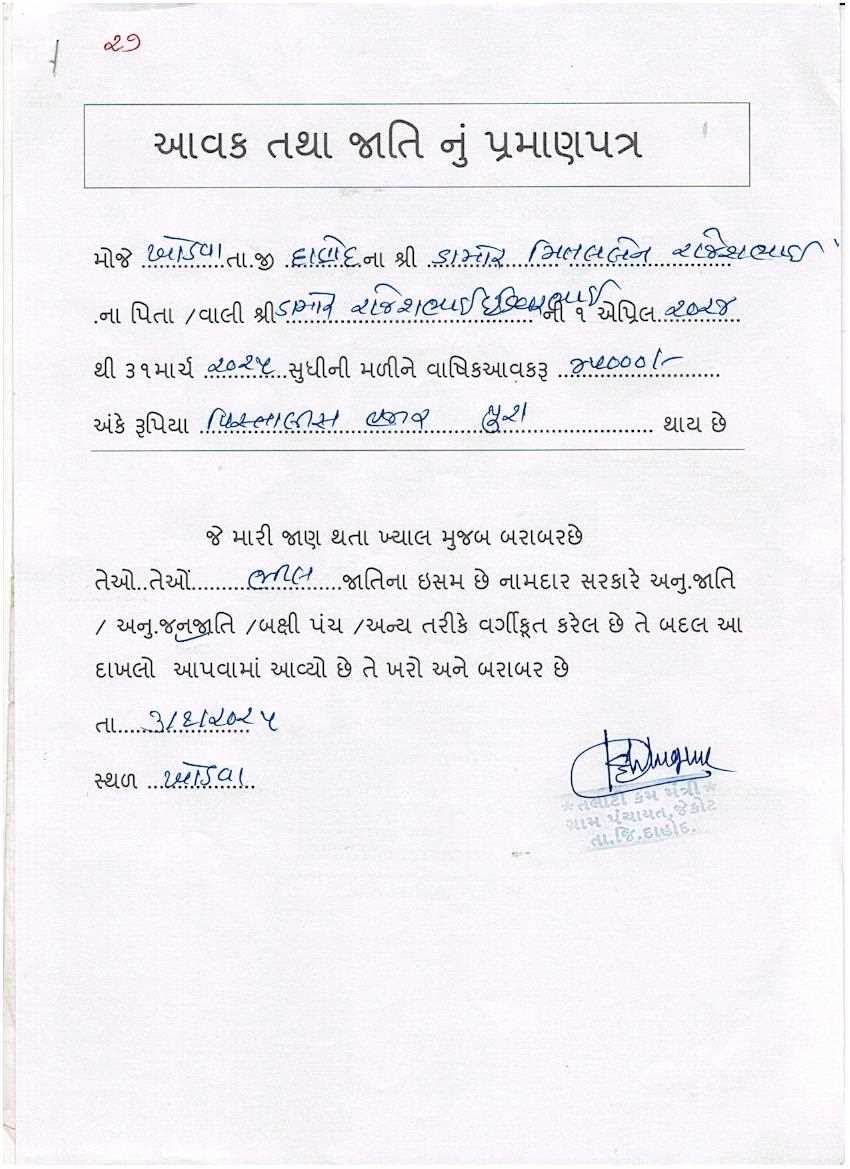 ૨૭
આવક તથા જાતિ નું પ્રમાણપત્ર
મોજે ખોડવા તા.જી દાહોદ ના શ્રી ડામોર મિતલબેન રાજેશભાઈ
.ના પિતા /વાલી શ્રી ડામોર રાજેશભાઈ ની ૧ એપ્રિલ ૨૦૨૪
થી ૩૧માર્ચ ૨૦૨૫ સુધીની મળીને વાષિકઆવકરૂ ૪૫૦૦૦/-
અંકે રૂપિયા પિસ્તાલીસ હજાર પુરા થાય છે
જે મારી જાણ થતા ખ્યાલ મુજબ બરાબરછે
તેઓ..તેઓં ભીલ જાતિના ઇસમ છે નામદાર સરકારે અનુ.જાતિ
/ અનુ.જનજાતિ /બક્ષી પંચ /અન્ય તરીકે વર્ગીકૃત કરેલ છે તે બદલ આ
દાખલો આપવામાં આવ્યો છે તે ખરો અને બરાબર છે
તા ૩/૬/૨૦૨૫
સ્થળ ખોડવા
*તલાટી કમ મંત્રી*
ગ્રામ પંચાયત,જેકોટ
તા.જિ.દાહોદ.